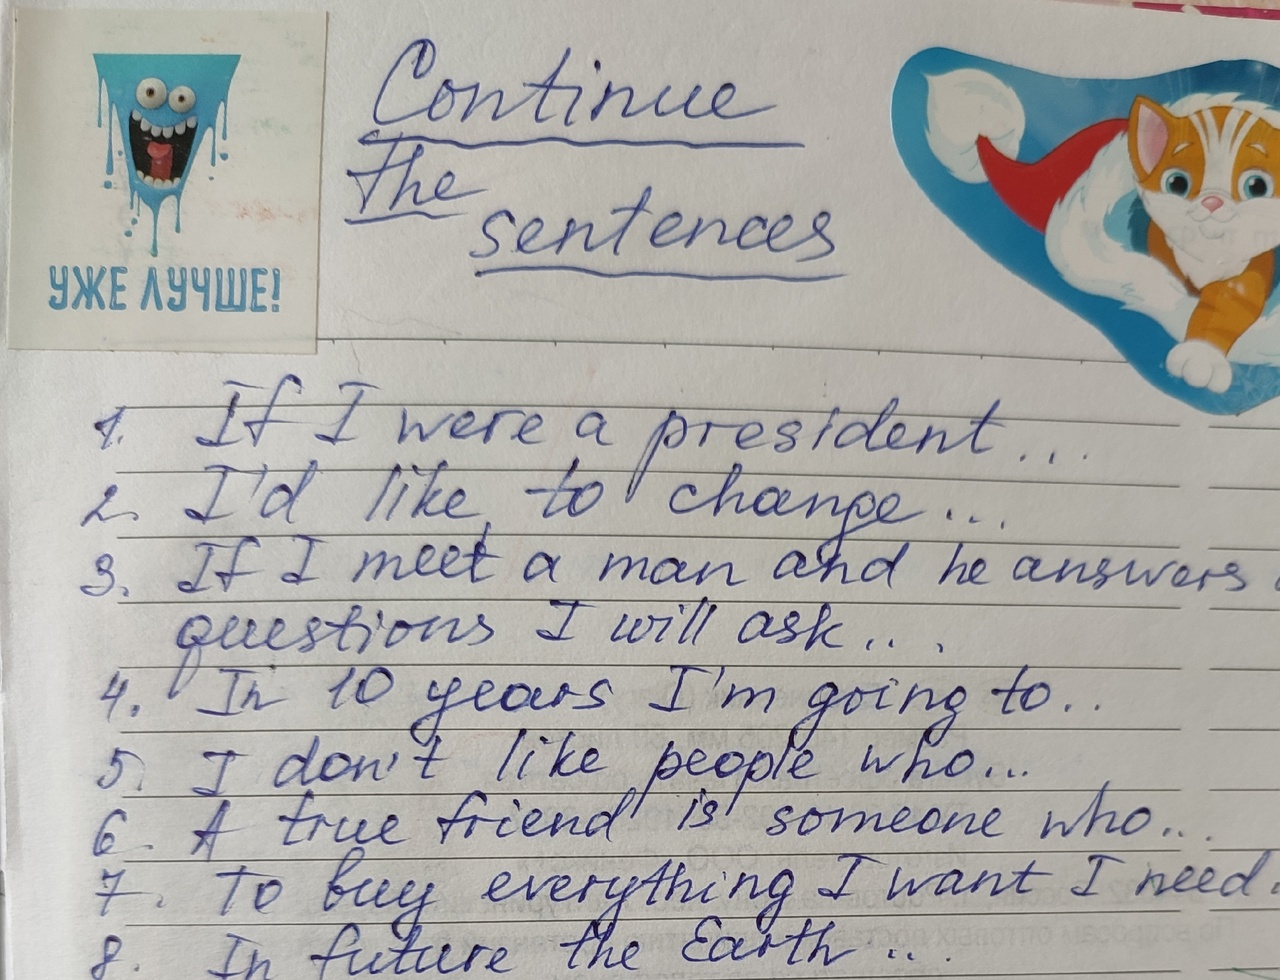 Continue
the
sentences
УЖЕ ЛУЧШЕ!
1. If I were a president...
2. I'd like to change...
3. If I meet a man and he answers
questions I will ask...
4. In 10 years I'm going to..
5. I don't like people who...
6. A true friend is someone who...
7. To buy everything I want I need
8. In future the Earth...